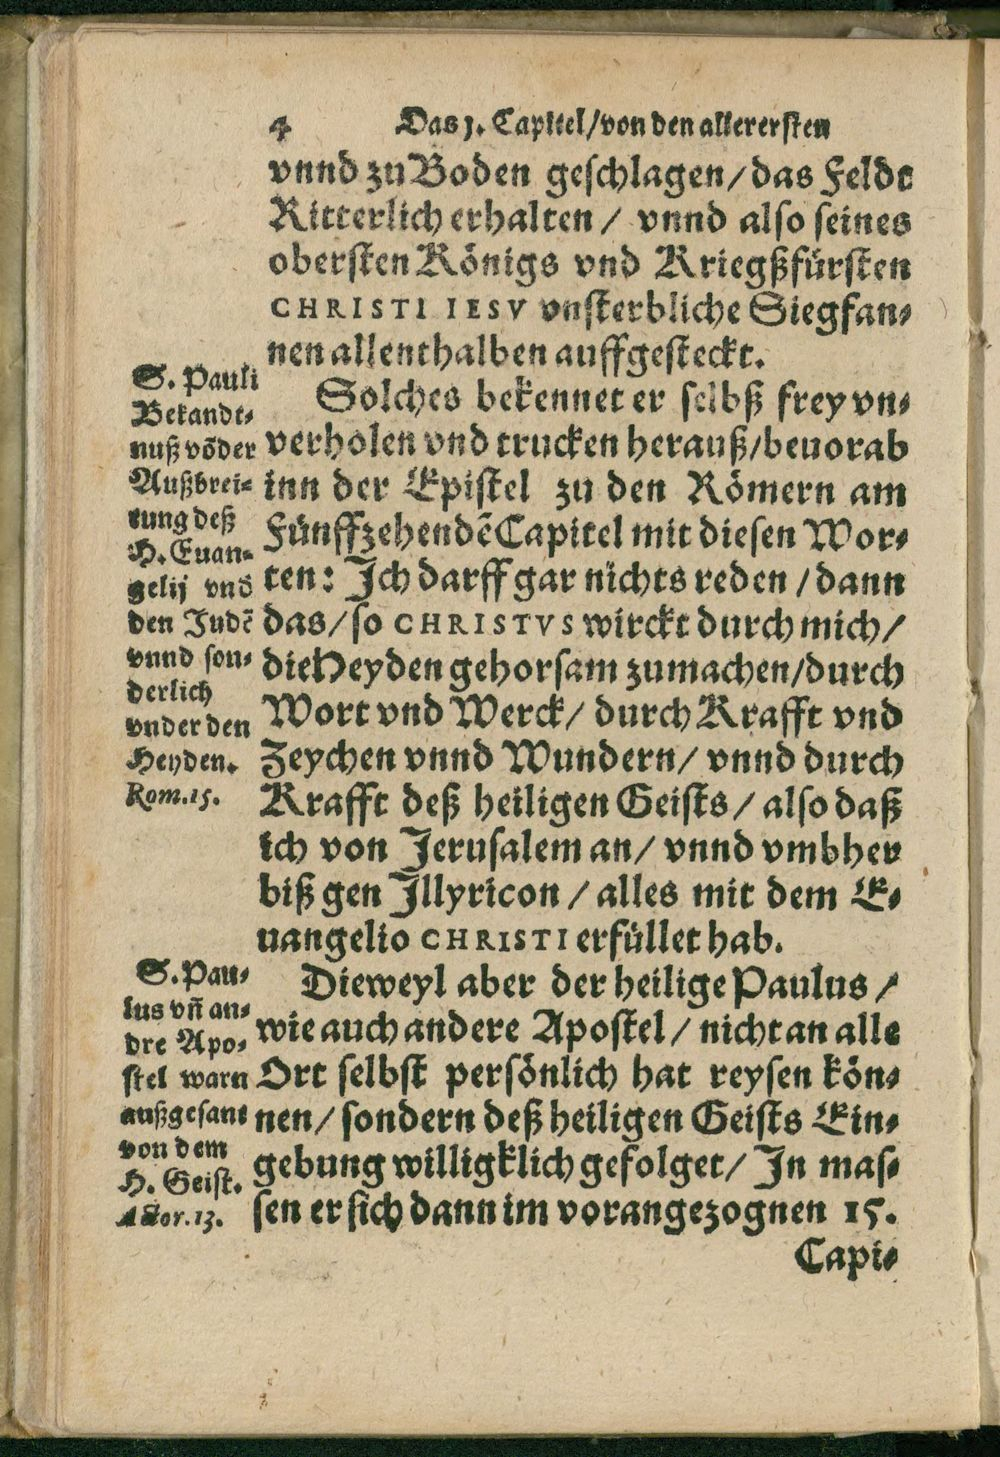 4 Das 1. Capittel/von den allerersten
vnnd zu Boden geschlagen/das Feldt
Ritterlich erhalten/ vnnd also seines
obersten Königs vnd Kriegßfürsten
CHRISTI IESV vnsterbliche Siegfan-
nen allenthalben auffgesteckt.
Solches bekennet er selbß frey vn-
verholen vnd trucken herauß/beuorab
inn der Epistel zu den Römern am
Fünffzehendẽ Capitel mit diesen Wor-
ten: Ich darff gar nichts reden/dann
das/so CHRISTVS wirckt durch mich/
die Heyden gehorsam zumachen/durch
Wort vnd Werck/ durch Krafft vnd
Zeychen vnnd Wundern/ vnnd durch
Krafft deß heiligen Geists/ also daß
ich von Jerusalem an/ vnnd vmbher
biß gen Illyricon/alles mit dem E-
uangelio CHRISTI erfüllet hab.
Dieweyl aber der heilige Paulus/
wie auch andere Apostel/ nicht an alle
Ort selbst persönlich hat reysen kön-
nen/ sondern deß heiligen Geists Ein-
gebung willigklich gefolget/ In mas-
sen er sich dann im vorangezognen 15.
Capi-
S. Pauli
Bekandt-
nuß võ der
Außbrei-
tung deß
H. Euan-
gelij vnd
den Judẽ
vnnd son-
derlich
vnder den
Heyden.
Rom.15.
S. Pau-
lus vñ an-
dre Apo-
stel warn
außgesant
von dem
H. Geist.
Actor.13.